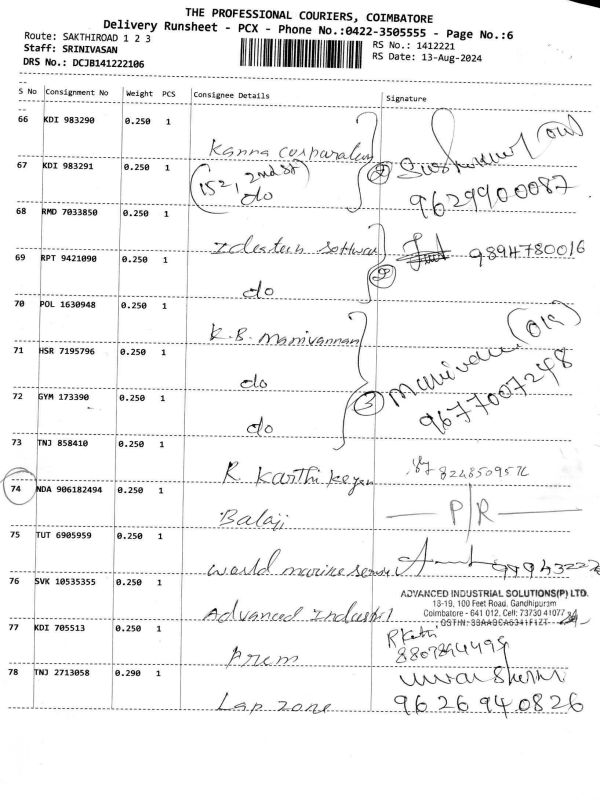 THE PROFESSIONAL COURIERS, COIMBATORE
Delivery Runsheet - PCX - Phone No.:0422-3505555 - Page No.:6
Route: SAKTHIROAD 1 2 3
RS No.: 1412221
Staff: SRINIVASAN
RS Date: 13-Aug-2024
DRS No.: DCJB141222106
S No Consignment No Weight PCS Consignee Details Signature
66 KDI 983290 0.250 1
Kanna Corparation
67 KDI 983291 0.250 1
(152, 2nd St) do 2 9629900087
68 RMD 7033850 0.250 1
Ideateen Software 9894780016
69 RPT 9421090 0.250 1
do 2
70 POL 1630948 0.250 1
K.B. Manivannan
71 HSR 7195796 0.250 1
do
72 GYM 173390 0.250 1
do 3 9677007248
73 TNJ 858410 0.250 1
R. Karthikeyan
74 NDA 906182494 0.250 1
Balaji P/R
75 TUT 6905959 0.250 1
World marine
76 SVK 10535355 0.250 1
ADVANCED INDUSTRIAL SOLUTIONS(P) LTD.
13-19, 100 Feet Road, Gandhipuram
Coimbatore - 641 012. Cell: 73730 41077
Advanced Industrial
77 KDI 705513 0.250 1
Prem
78 TNJ 2713058 0.290 1
Lap zone 9626940826